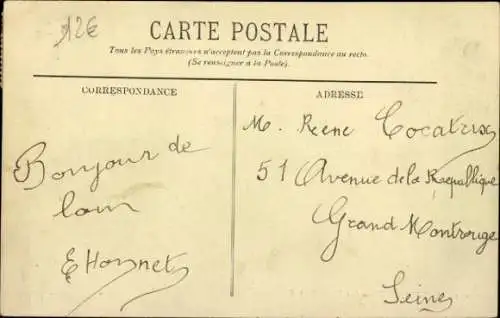 12€
CARTE POSTALE
Tous les Pays étrangers n'acceptent pas la Correspondance au recto.
(Se renseigner à la Poste).
CORRESPONDANCE
Bonjour de
loin
E Hornet
ADRESSE
M. Rene Cocatrix
51 Avenue de la République
Grand Montrouge
Seine